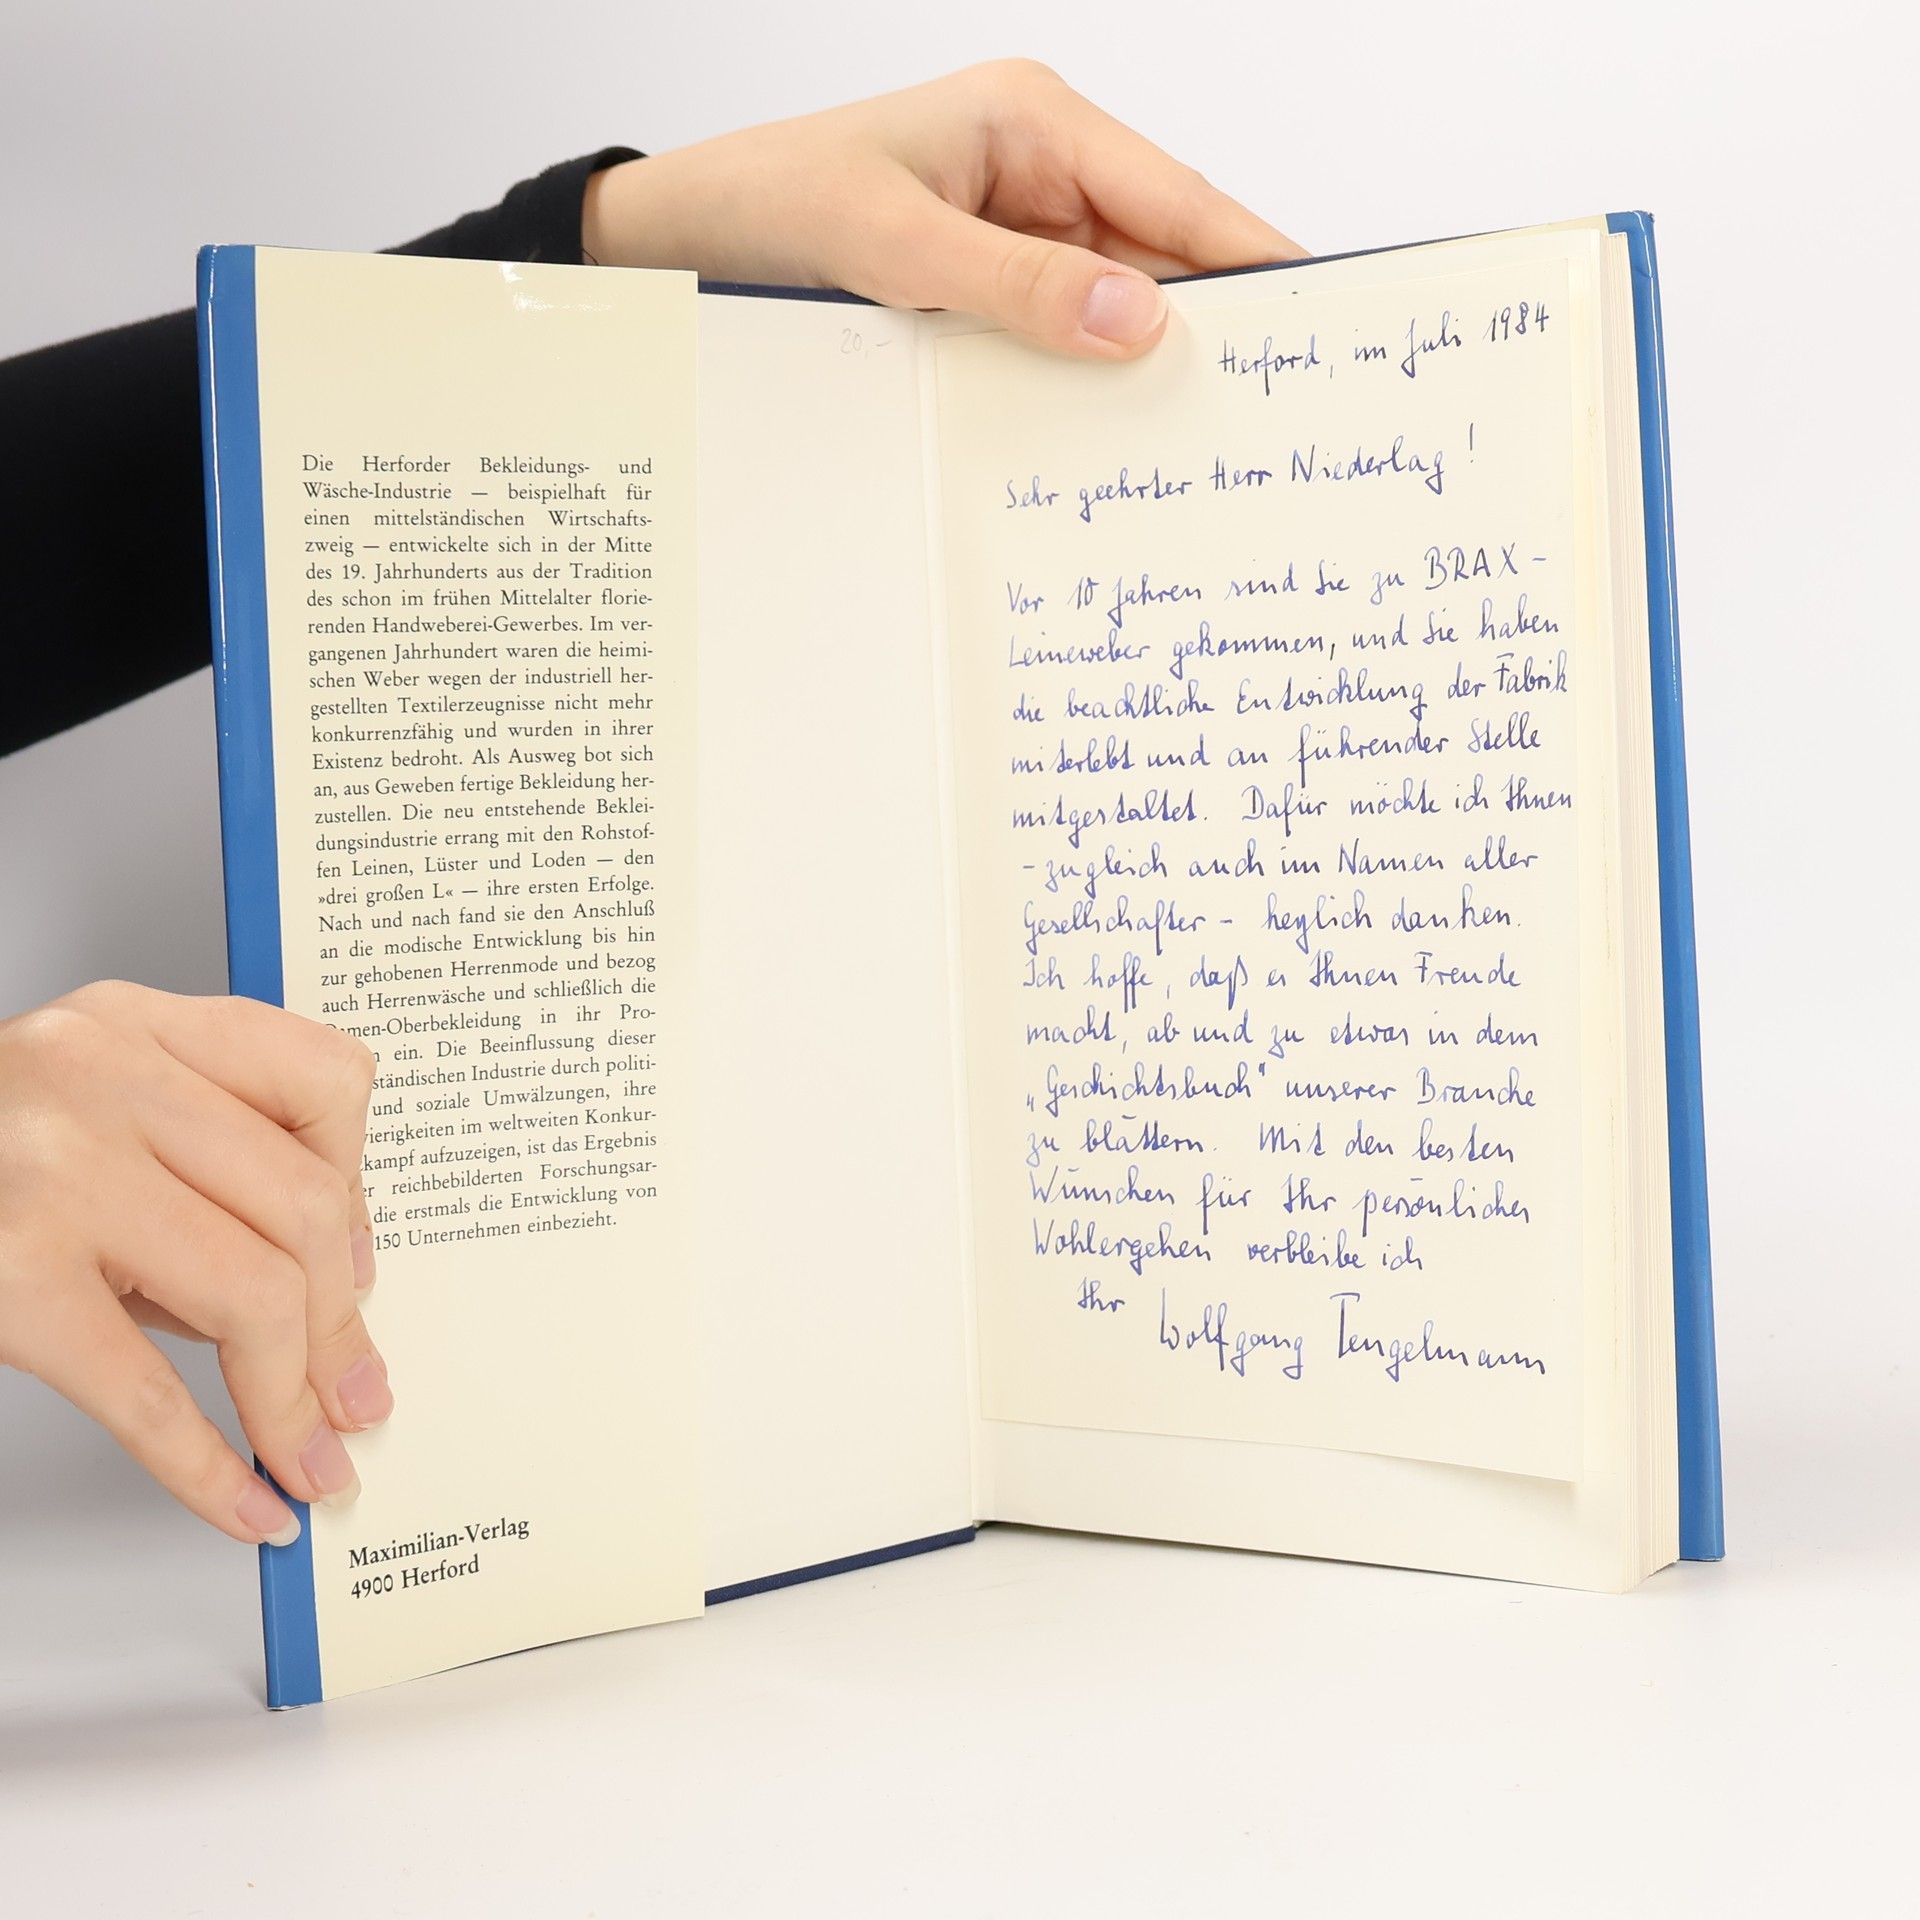 Die Herforder Bekleidungs- und
Wäsche-Industrie — beispielhaft für
einen mittelständischen Wirtschafts-
zweig — entwickelte sich in der Mitte
des 19. Jahrhunderts aus der Tradition
des schon im frühen Mittelalter florie-
renden Handweberei-Gewerbes. Im ver-
gangenen Jahrhundert waren die heimi-
schen Weber wegen der industriell her-
gestellten Textilerzeugnisse nicht mehr
konkurrenzfähig und wurden in ihrer
Existenz bedroht. Als Ausweg bot sich
an, aus Geweben fertige Bekleidung her-
zustellen. Die neu entstehende Beklei-
dungsindustrie errang mit den Rohstof-
fen Leinen, Lüster und Loden — den
»drei großen L« — ihre ersten Erfolge.
Nach und nach fand sie den Anschluß
an die modische Entwicklung bis hin
zur gehobenen Herrenmode und bezog
auch Herrenwäsche und schließlich die
Damen-Oberbekleidung in ihr Pro-
ein. Die Beeinflussung dieser
ständischen Industrie durch politi-
und soziale Umwälzungen, ihre
ierigkeiten im weltweiten Konkur-
kampf aufzuzeigen, ist das Ergebnis
reichbebilderten Forschungsar-
die erstmals die Entwicklung von
150 Unternehmen einbezieht.
Maximilian-Verlag
4900 Herford
20,-
Herford, im Juli 1984
Sehr geehrter Herr Niederlag!
Vor 10 Jahren sind Sie zu BRAX-
Leineweber gekommen, und Sie haben
die beachtliche Entwicklung der Fabrik
miterlebt und an führender Stelle
mitgestaltet. Dafür möchte ich Ihnen
- zugleich auch im Namen aller
Gesellschafter - herzlich danken.
Ich hoffe, daß es Ihnen Freude
macht, ab und zu etwas in dem
„Geschichtsbuch" unserer Branche
zu blättern. Mit den besten
Wünschen für Ihr persönliches
Wohlergehen verbleibe ich
Ihr Wolfgang Tengelmann